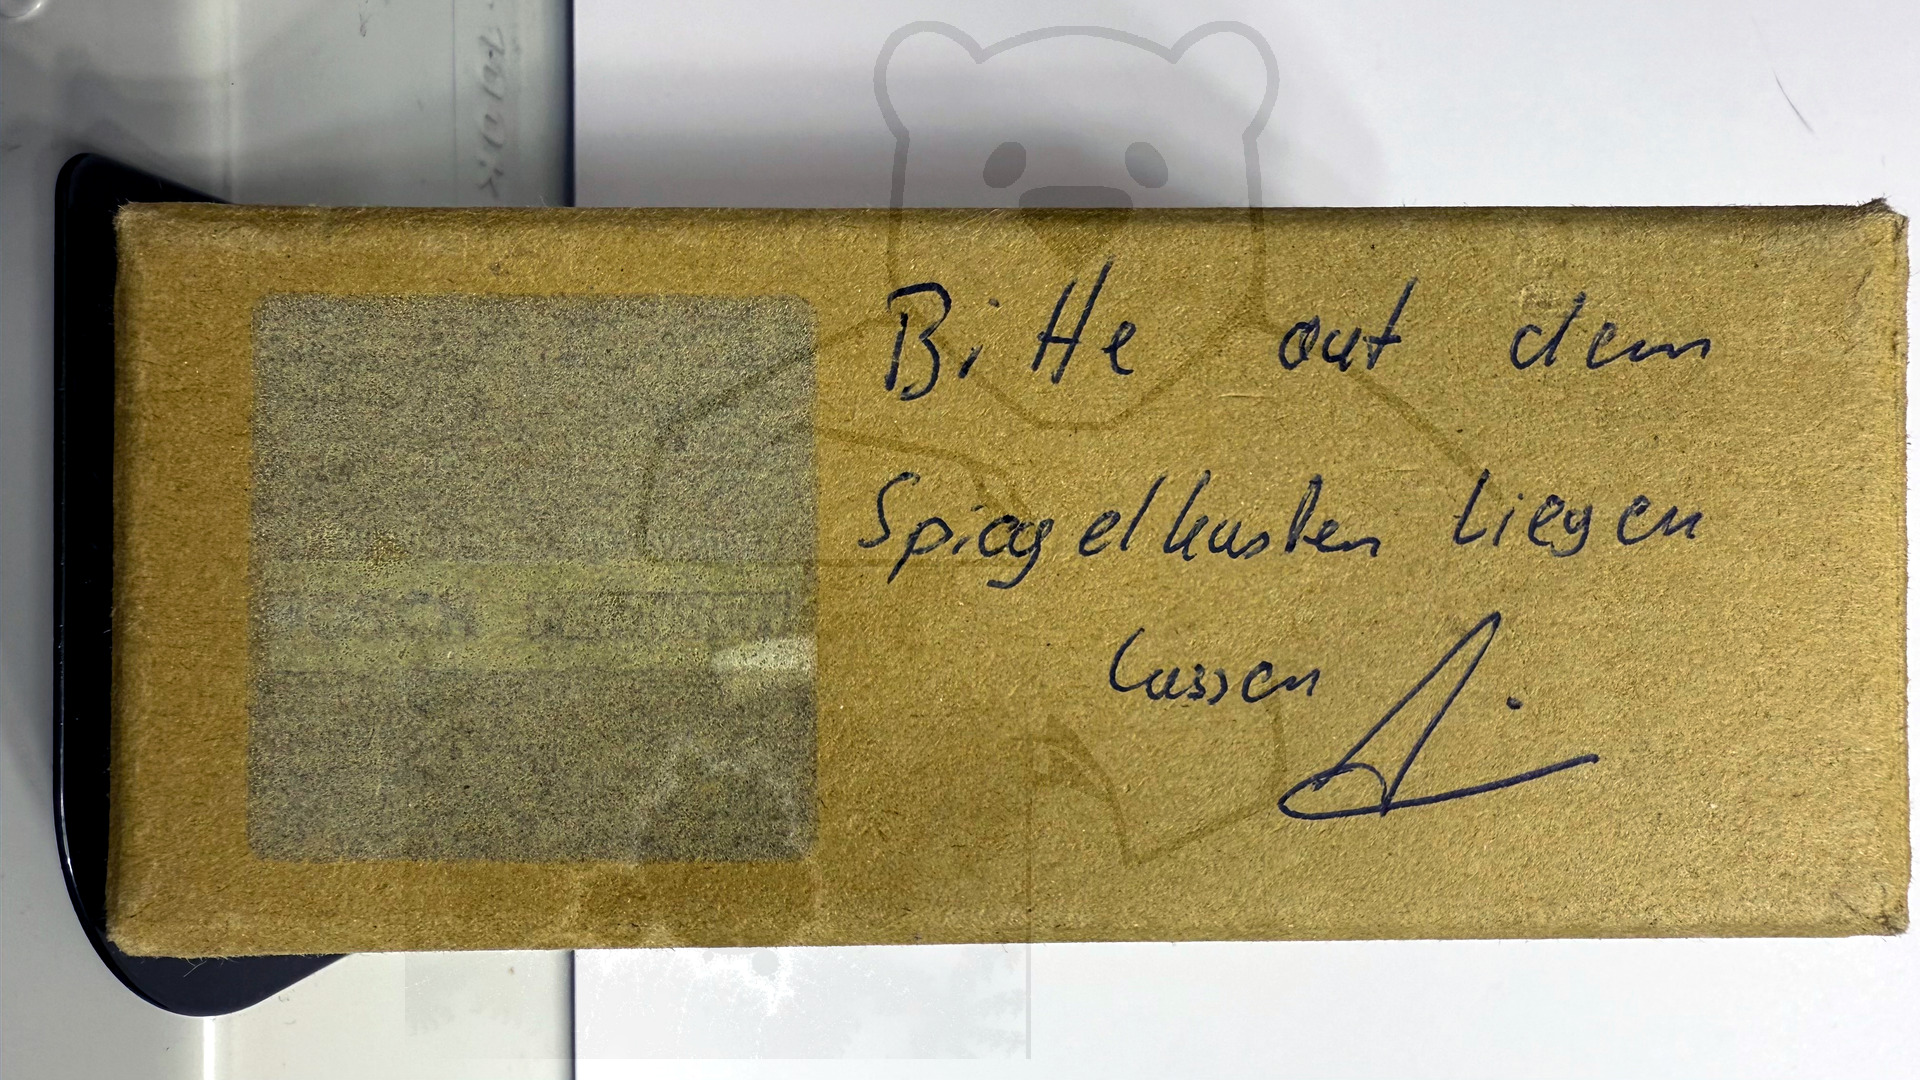 Bitte auf dem
Spiegelkasten liegen
lassen